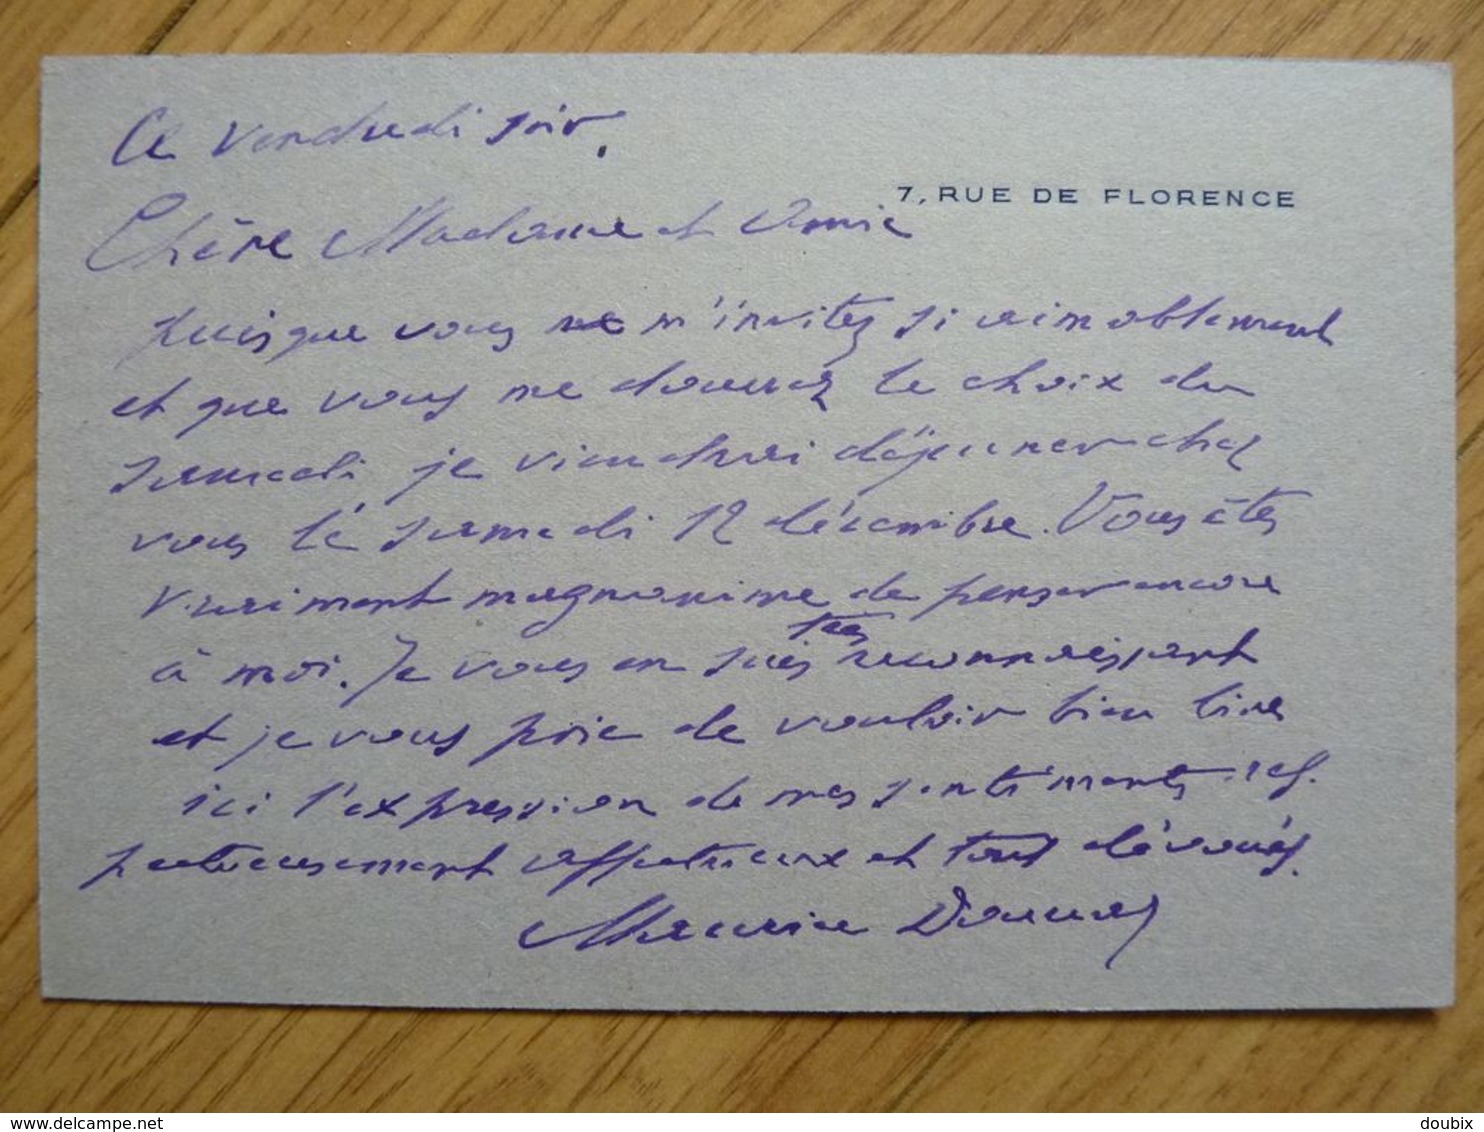 Ce vendredi soir.
7, RUE DE FLORENCE
Chère Madame et Amie
puisque vous ne m'invitez si aimablement
et que vous me donnez le choix du
samedi, je viendrai déjeuner chez
vous le samedi 12 décembre. Vous êtes
vraiment magnanime de penser encore
à moi. Je vous en suis très reconnaissant
et je vous prie de vouloir bien lire
ici l'expression de mes sentiments res-
pectueusement affectueux et tout dévoués.
Maurice Donnay
www.delcampe.net
doubix